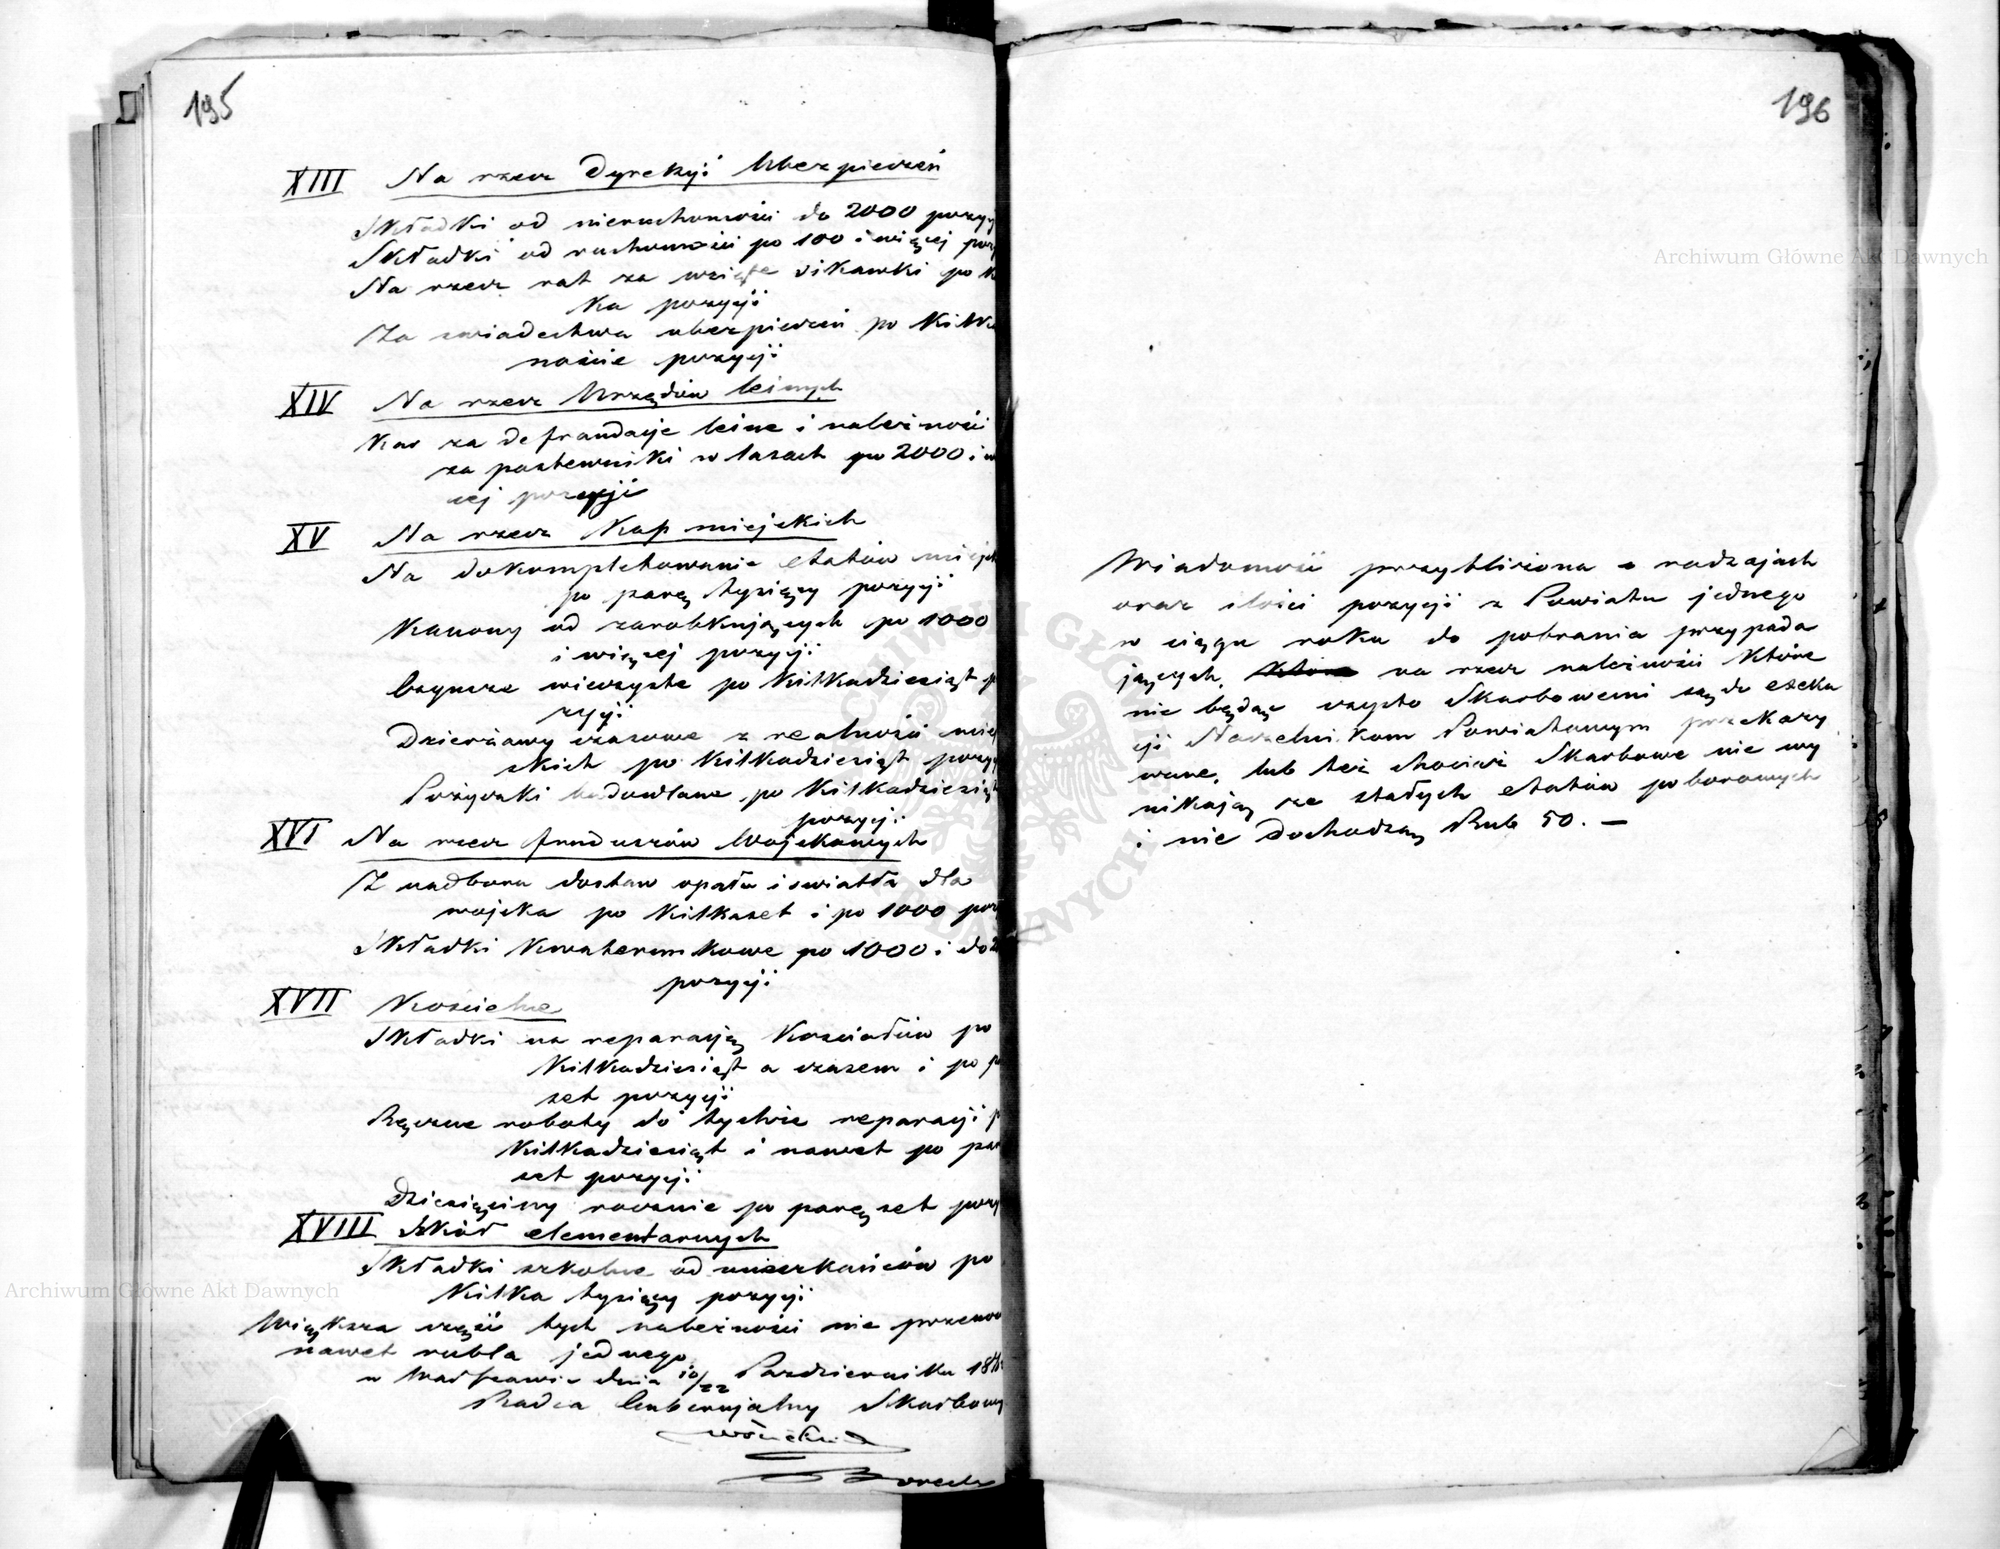 195
XIII Na rzecz Dyrekcji Ubezpieczeń
Składki od nieruchomości do 2000 pozycj
Składki od ruchomości po 100 i więcej poz
Na rzecz rat za wzięte sikawki po k
ka pozycji
Za swiadectwa ubezpieczeń po kilka
naście pozycji
XIV Na rzecz Urzędów leśnych
Kar za defraudacje leśne i należności
za pastewniki w lasach po 2000 i w
cej pozycji
XV Na rzecz Kas miejskich
Na dokompletowanie etatów miejsk
po parę tysięcy pozycji
Kanony od zarobkujących po 1000
i więcej pozycji
Czynsze wieczyste po kilkadziesiąt p
zycji
Dzierżawy czasowe z realności miej
skich po kilkadziesiąt pozycj
Pożyczki budowlane po kilkadziesiąt
pozycji
XVI Na rzecz funduszów Wojskowych
Z nadboru dostaw opału i swiatła dla
wojska po kilkaset i po 1000 poz
Składki kwaterunkowe po 1000 i do 2
pozycji
XVII Kościelne
Składki na reparacją Kościołów po
kilkadziesiąt a czasem i po p
set pozycji
Ręczne roboty do tychże reparacji p
kilkadziesiąt i nawet po par
set pozycji
Dziesięciny roczne po parę set pozy
XVIII Szkół elementarnych
Składki szkolne od mieszkańców po
kilka tysięcy pozycji
Większa część tych należności nie przenosi
nawet rubla jednego
w Warszawie dnia 10/22 Pazdziernika 184
Radca Gubernjalny Skarbowy
196
Wiadomość przybliżona o rodzajach
oraz ilości pozycji z Powiatu jednego
w ciągu roku do pobrania przypada
jących, na rzecz należności które
nie będąc czysto Skarbowemi są do exeku
cji Naczelnikom Powiatowym przekazy
wane, lub też chociaż Skarbowe nie wy
nikają ze stałych etatów poborowych
i nie dochodzą Rub 50. —
Archiwum Główne Akt Dawnych
Archiwum Główne Akt Dawnych